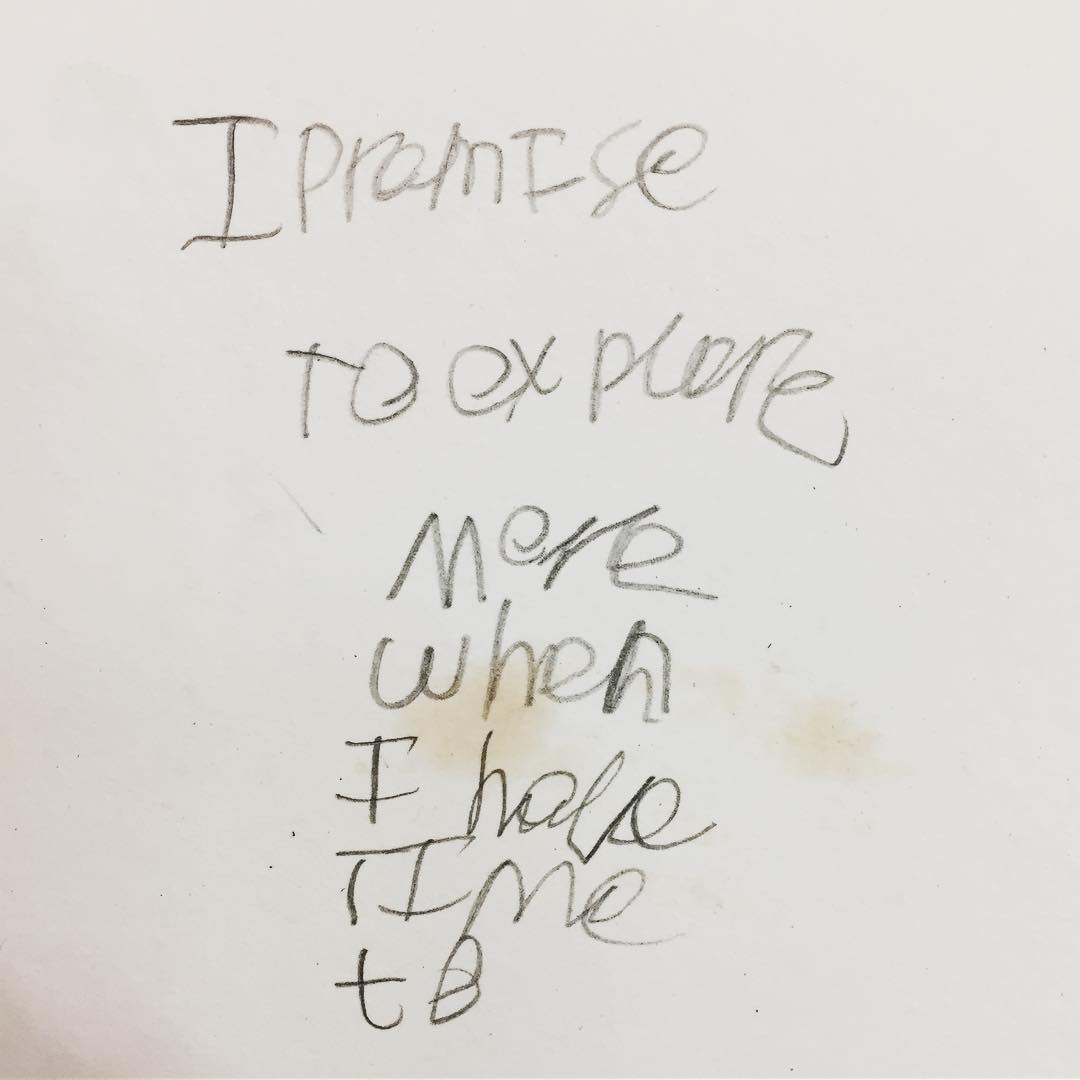 I promIse
to explore
More
when
I have
TIMe
to